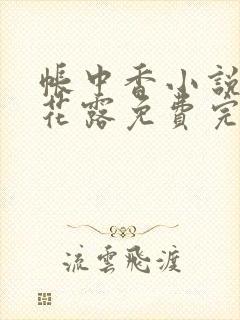 帳中香小說
花露免費完
流雲飛渡